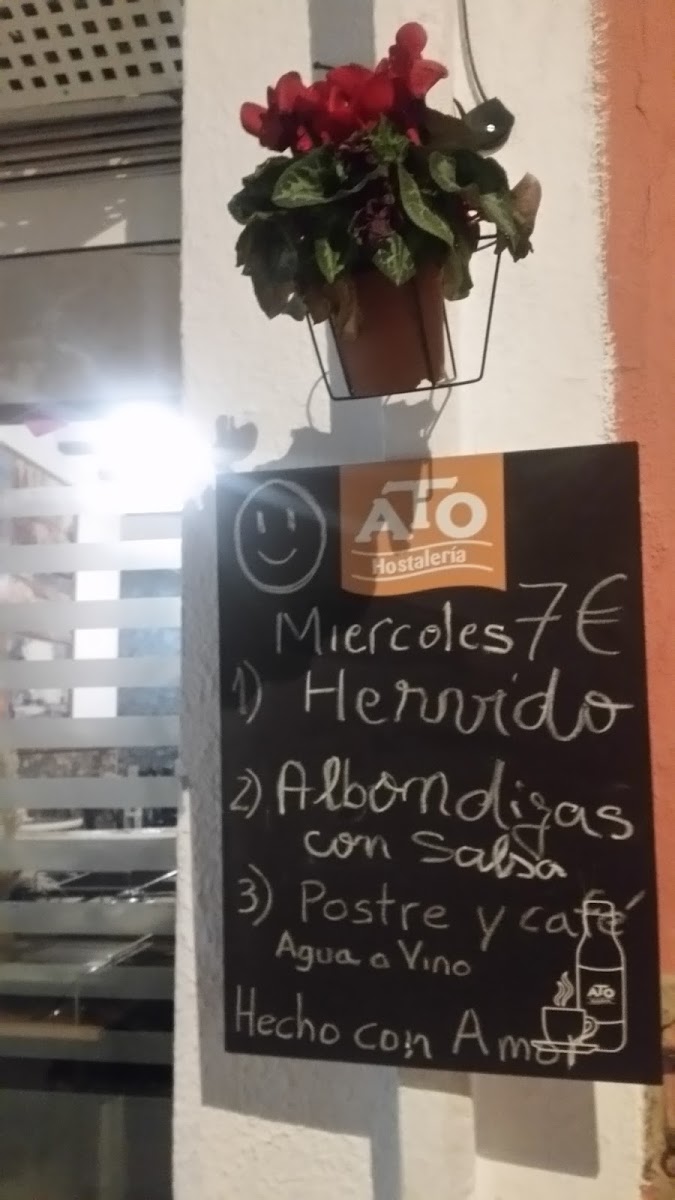 ATO
Hostalería
Miercoles 7€
1) Hervido
2) Albondigas
con salsa
3) Postre y café
Agua o Vino
ATO
Hecho con Amor